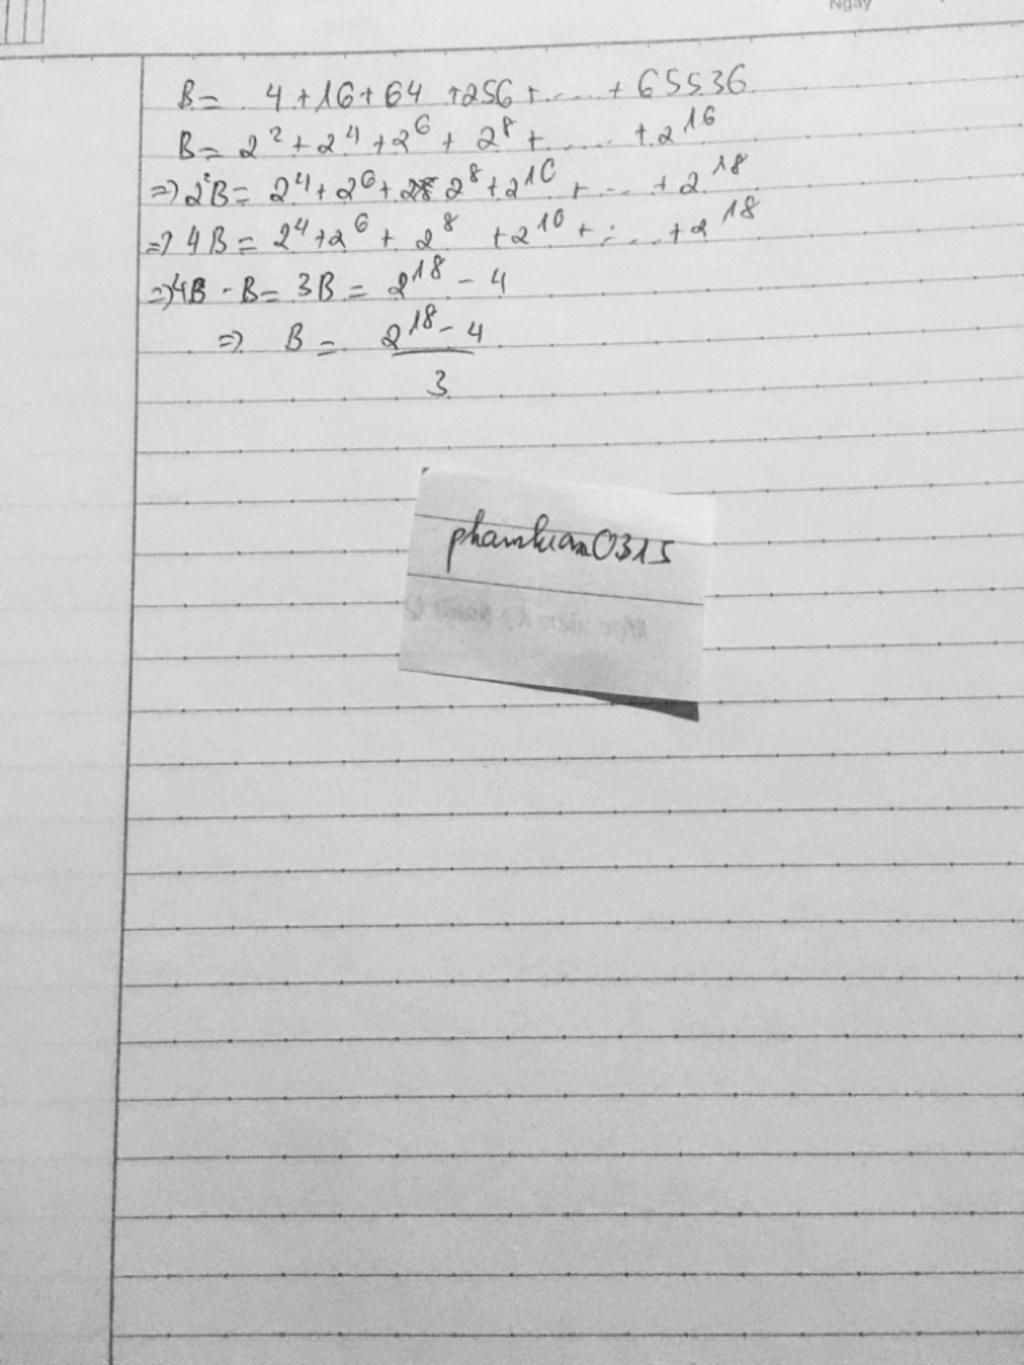 Ngày
B = 4 + 16 + 64 + 256 + .... + 65536
B = 2² + 2⁴ + 2⁶ + 2⁸ + ..... + 2¹⁶
=> 2²B = 2⁴ + 2⁶ + 2⁸ + 2¹⁰ + ... + 2¹⁸
=> 4B = 2⁴ + 2⁶ + 2⁸ + 2¹⁰ + .... + 2¹⁸
=> 4B - B = 3B = 2¹⁸ - 4
=> B = 2¹⁸ - 4
3
phamluan0315